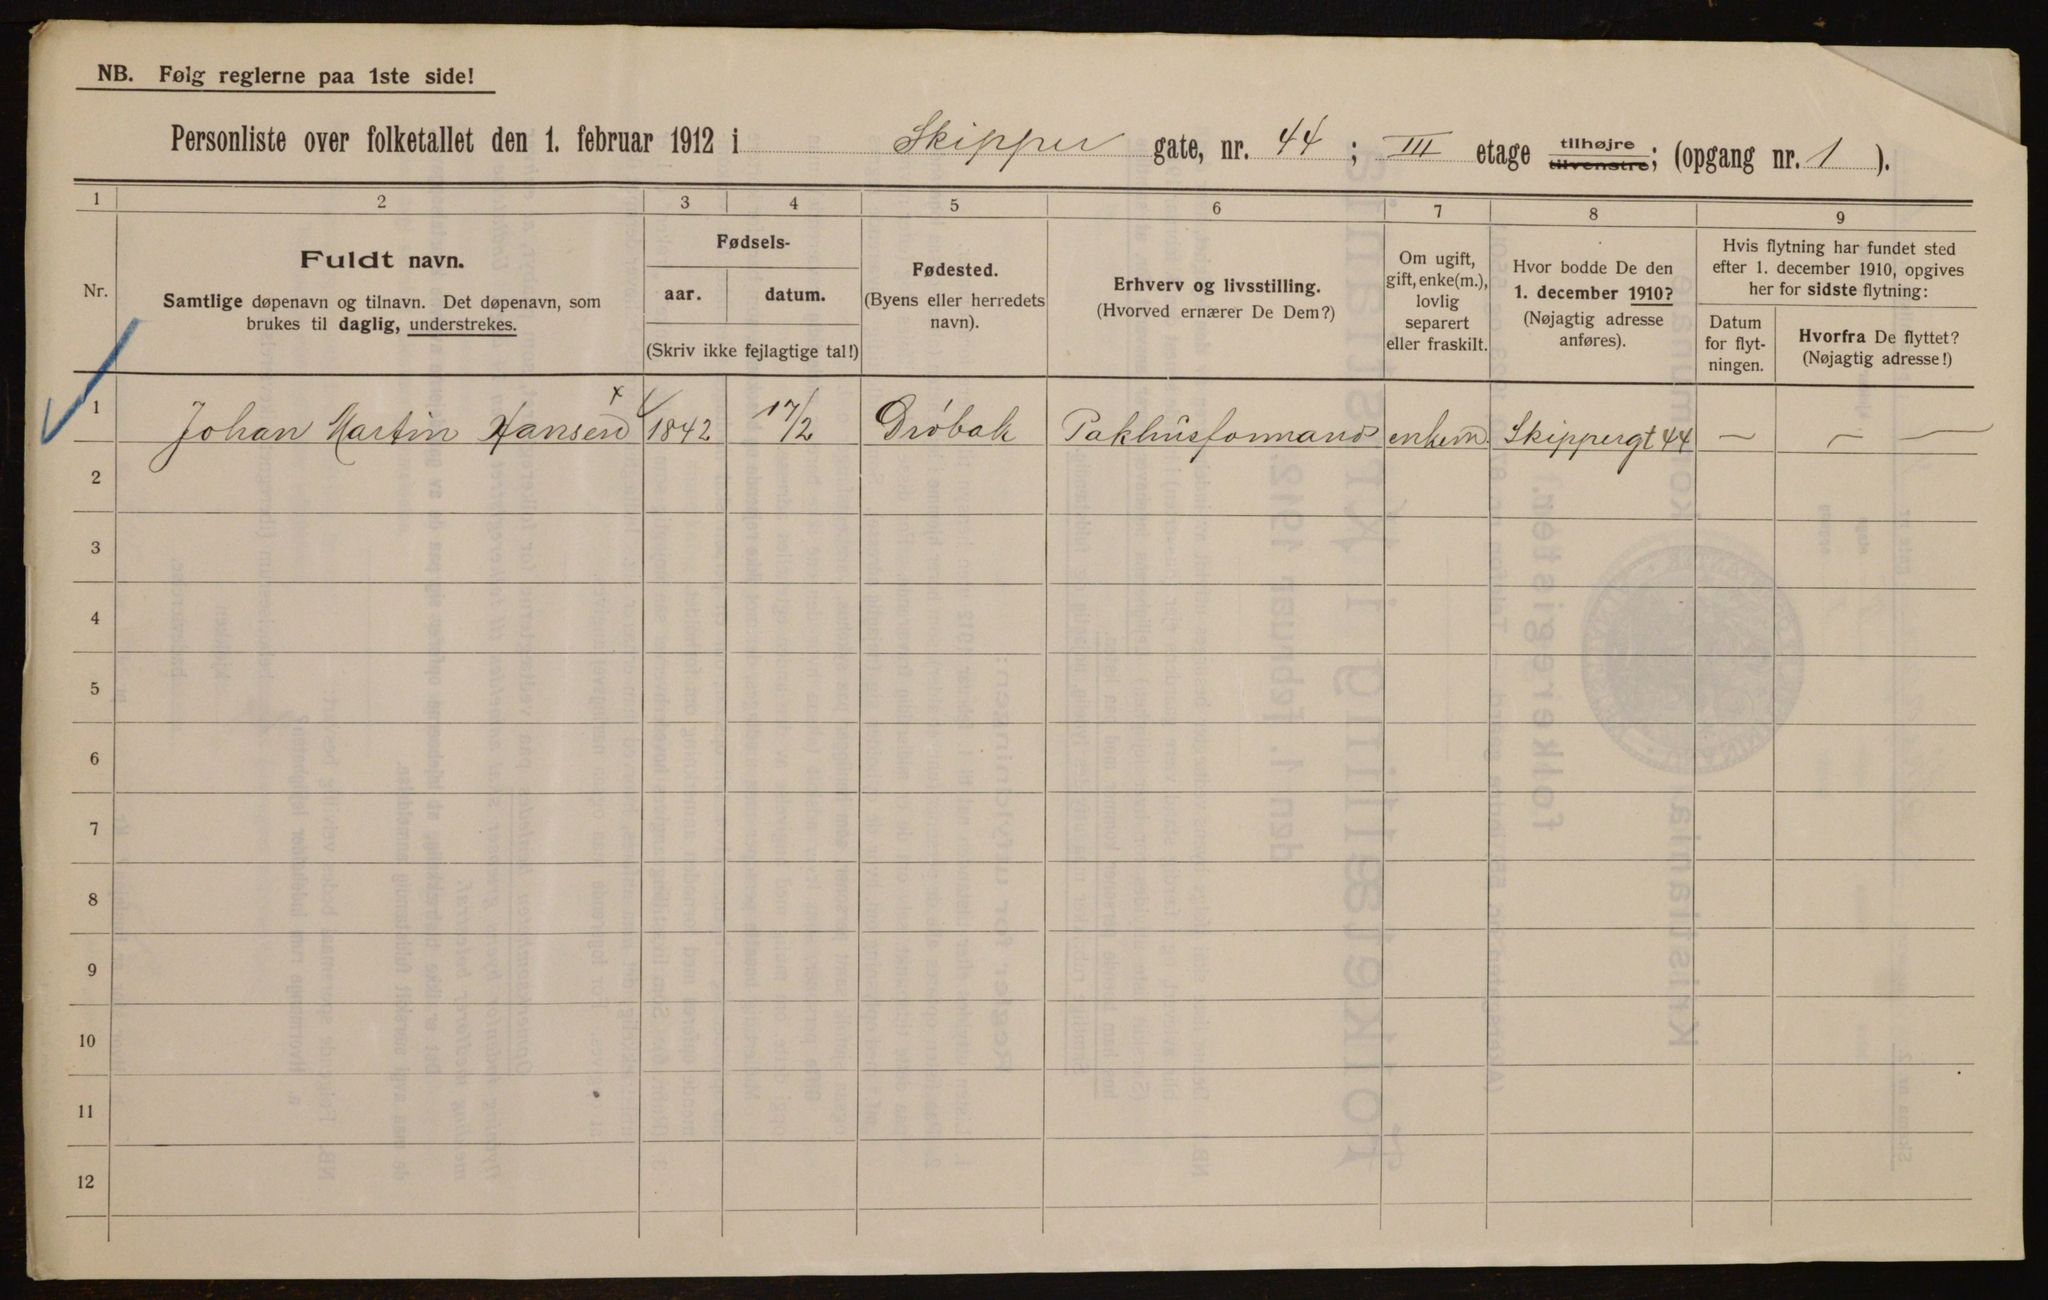 NB. Følg reglerne paa 1ste side!
Personliste over folketallet den 1. februar 1912 i Skipper gate, nr. 44; III etage tilhøjre tilvenstre; (opgang nr. 1).
1 2 3 4 5 6 7 8 9
Nr.
Fuldt navn.
Samtlige døpenavn og tilnavn. Det døpenavn, som
brukes til daglig, understrekes.
Fødsels-
aar. datum.
(Skriv ikke fejlagtige tal!)
Fødested.
(Byens eller herredets
navn).
Erhverv og livsstilling.
(Hvorved ernærer De Dem?)
Om ugift,
gift, enke(m.),
lovlig
separert
eller fraskilt.
Hvor bodde De den
1. december 1910?
(Nøjagtig adresse
anføres).
Hvis flytning har fundet sted
efter 1. december 1910, opgives
her for sidste flytning:
Datum
for flyt-
ningen.
Hvorfra De flyttet?
(Nøjagtig adresse!)
1 Johan Martin Hansen 1842 17/2 Drøbak Pakhusformand enkem. Skippergt 44 — — —
2
3
4
5
6
7
8
9
10
11
12